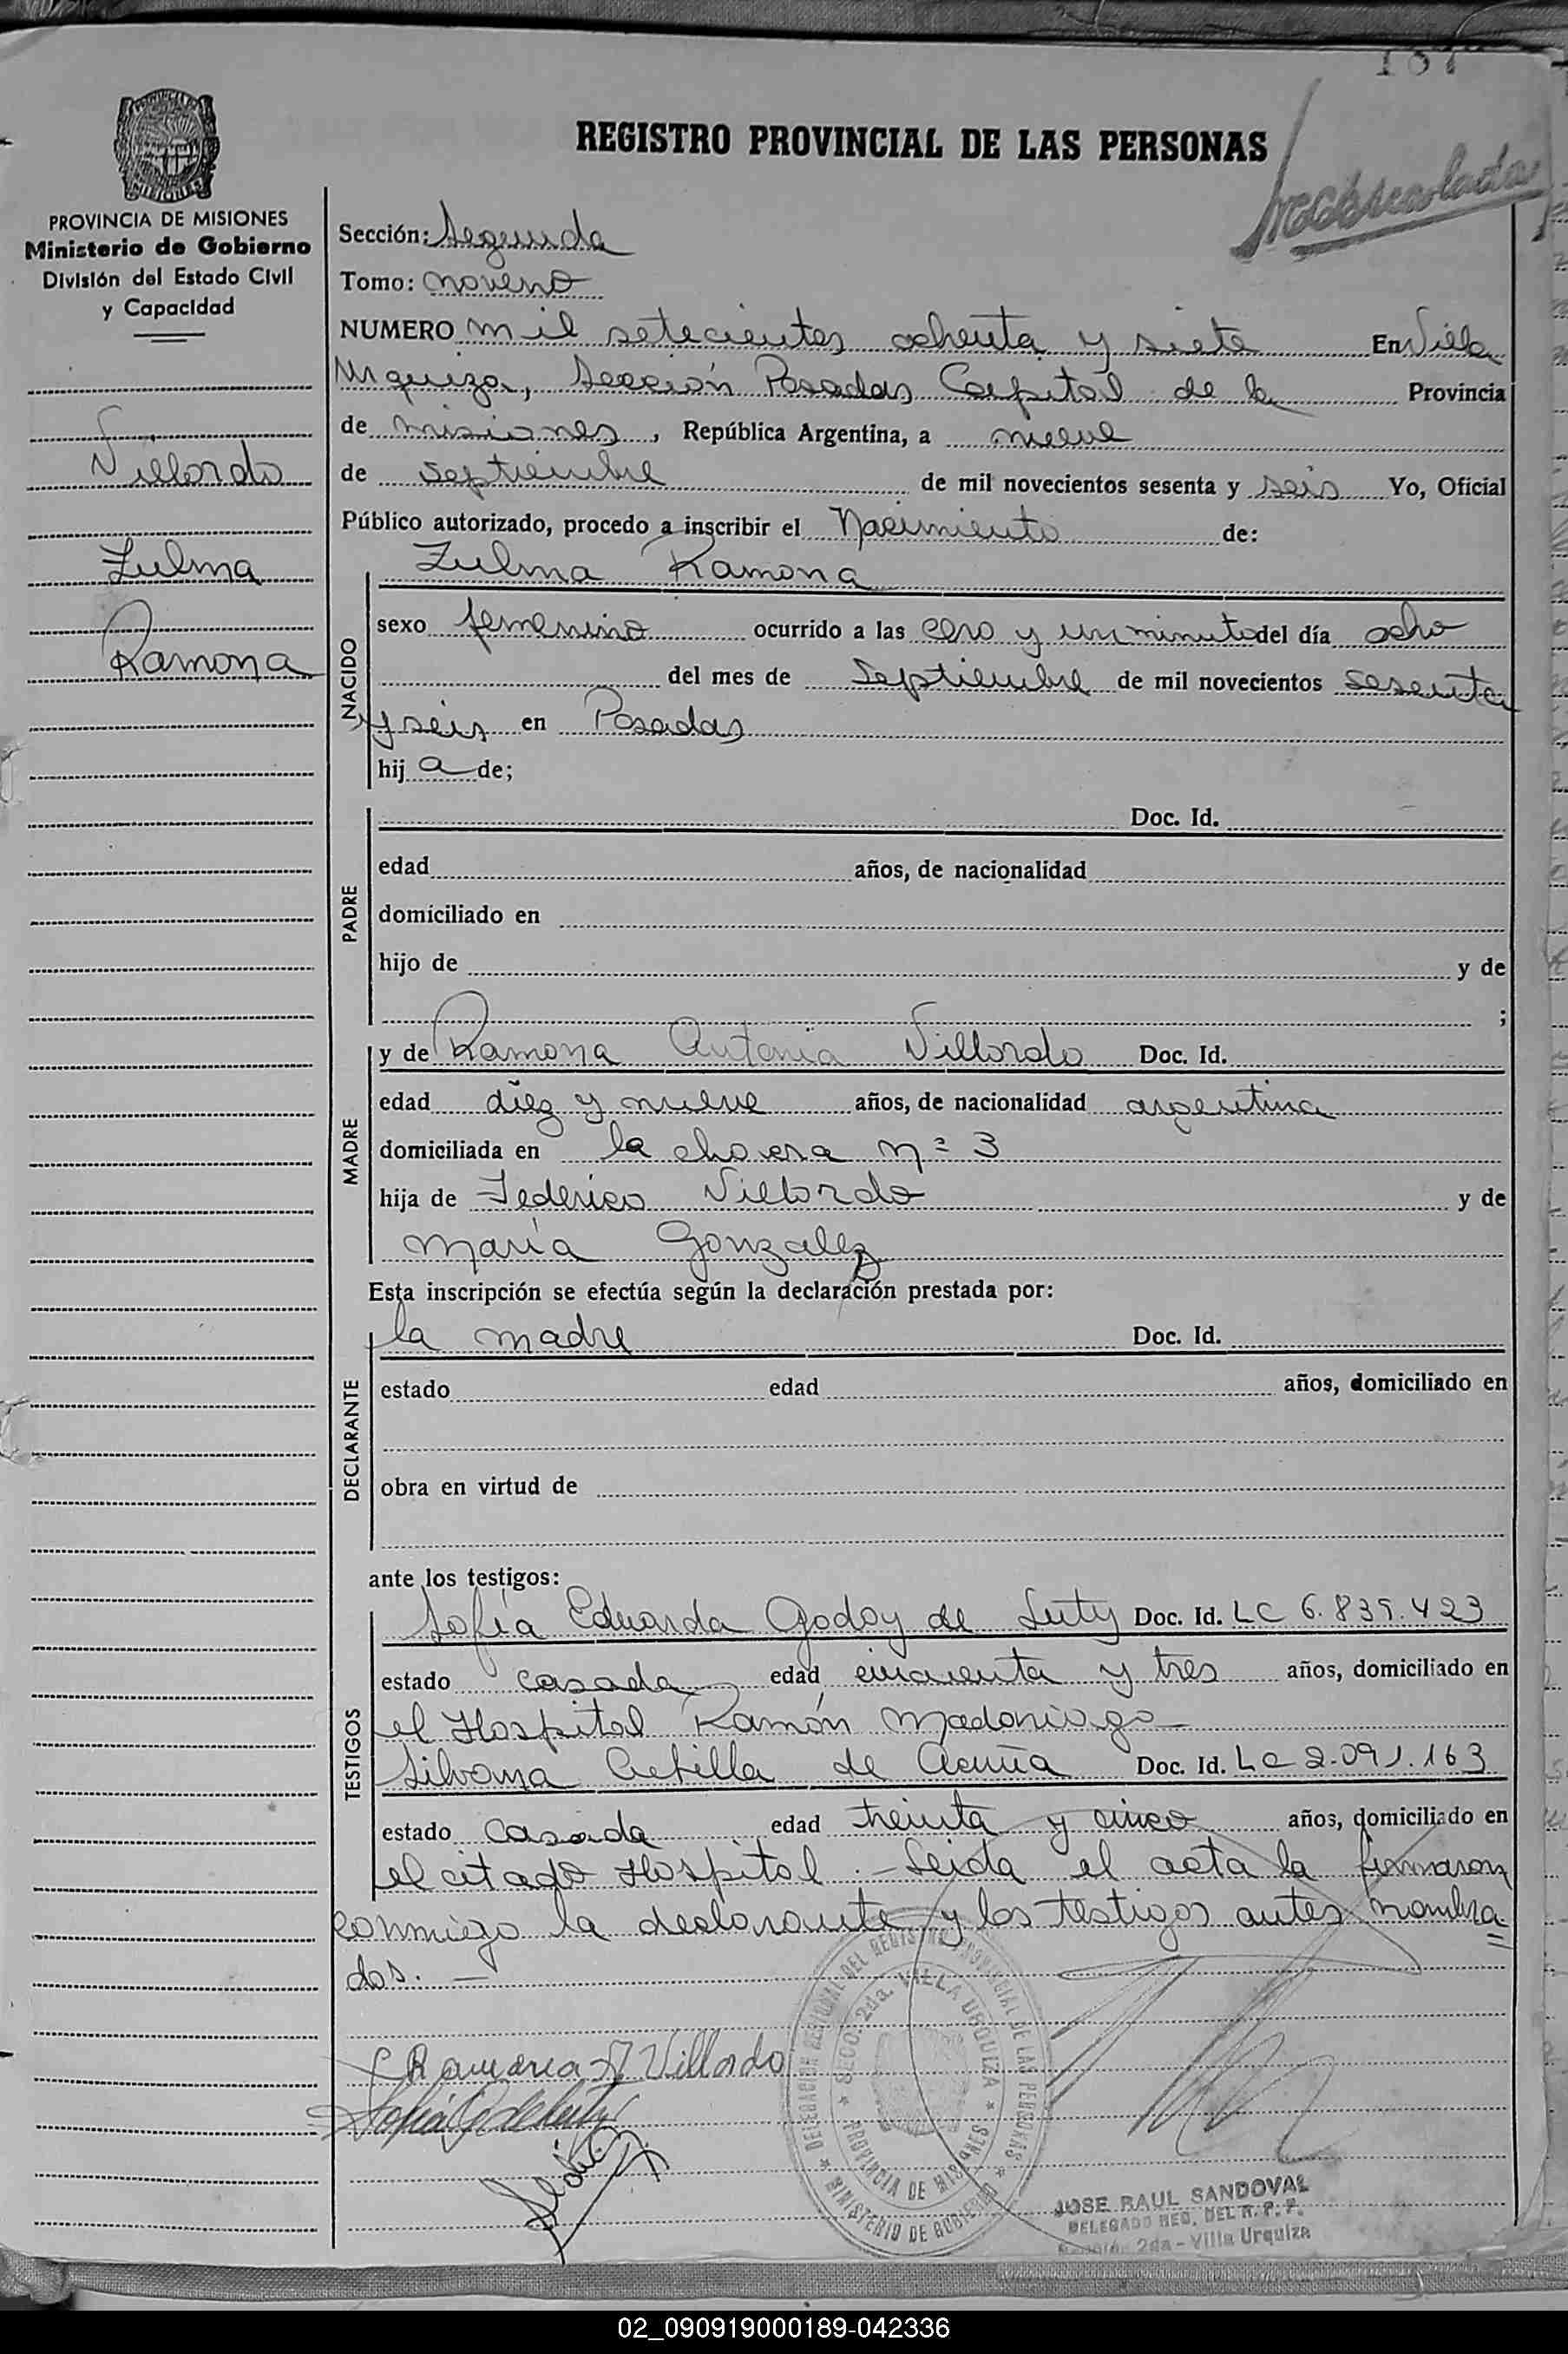 187
REGISTRO PROVINCIAL DE LAS PERSONAS
PROVINCIA DE MISIONES
Ministerio de Gobierno
División del Estado Civil
y Capacidad
Villordo
Zulma
Ramona
Sección: Segunda
Tomo: noveno
NUMERO mil setecientos ochenta y siete En Villa
Urquiza, Sección Posadas Capital de la Provincia
de misiones, República Argentina, a nueve
de septiembre de mil novecientos sesenta y seis Yo, Oficial
Público autorizado, procedo a inscribir el Nacimiento de:
Zulma Ramona
NACIDO
sexo femenino ocurrido a las cero y un minuto del día ocho
del mes de Septiembre de mil novecientos sesenta
y seis en Posadas
hij a de;
PADRE
Doc. Id.
edad años, de nacionalidad
domiciliado en
hijo de y de
;
MADRE
y de Ramona Antonia Villordo Doc. Id.
edad diez y nueve años, de nacionalidad argentina
domiciliada en la chacra n= 3
hija de Federico Villordo y de
María Gonzalez
Esta inscripción se efectúa según la declaración prestada por:
DECLARANTE
la madre Doc. Id.
estado edad años, domiciliado en
obra en virtud de
ante los testigos:
TESTIGOS
Sofía Eduarda Godoy de Luty Doc. Id. LC 6.839.423
estado casada edad cincuenta y tres años, domiciliado en
el Hospital Ramón Madariaga
Silvana de Acuña Doc. Id. LC 2.091.163
estado casada edad treinta y cinco años, domiciliado en
el citado Hospital.- Leida el acta la firmaron
conmigo la declarante y los testigos antes nombra=
dos. —
Ramona A Villordo
DELEGACION REGIONAL DEL REGISTRO PROVINCIAL DE LAS PERSONAS
SECC. 2da. VILLA URQUIZA
PROVINCIA DE MISIONES
MINISTERIO DE GOBIERNO
JOSE RAUL SANDOVAL
DELEGADO REG. DEL R. P. P.
Sección 2da - Villa Urquiza
02_090919000189-042336